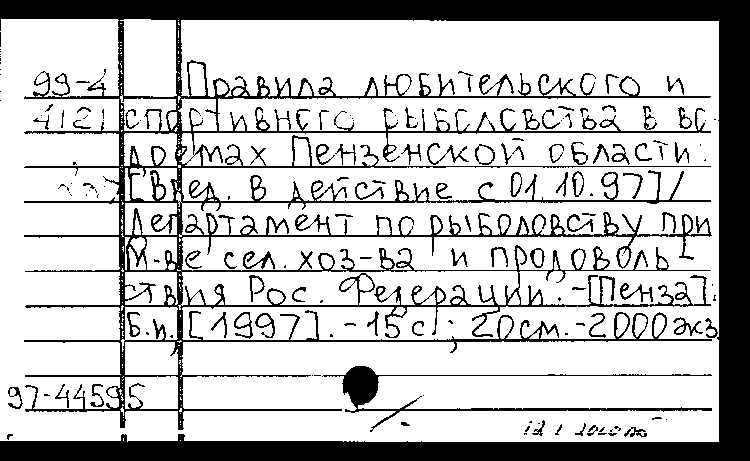 99-4 Правила любительского и
4121 спортивного рыболовства в во-
доемах Пензенской области:
[Введ. в действие с 01.10.97]/
Департамент по рыболовству при
М-ве сел. хоз-ва и продоволь-
ствия Рос. Федерации.-[Пенза]:
Б.и., [1997].-15с.; 20см.-2000экз
97-44595